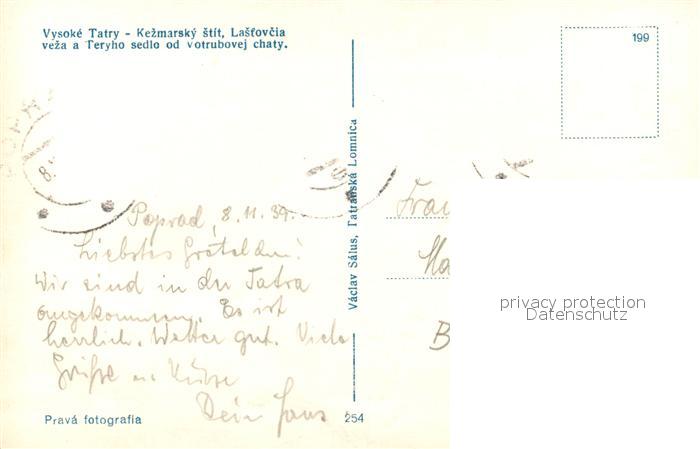 Vysoké Tatry - Kežmarský štít, Lašťovčia
veža a Teryho sedlo od Votrubovej chaty.
199
Poprad, 8.11.39.
Liebstes Gretelchen!
Wir sind in der Tatra
angekommen. Es ist
herrlich. Wetter gut. Viele
Grüße u. Küsse
Dein Hans
Václav Sálus, Tatranská Lomnica
Frau
Ma
B
privacy protection
Datenschutz
Pravá fotografia
254